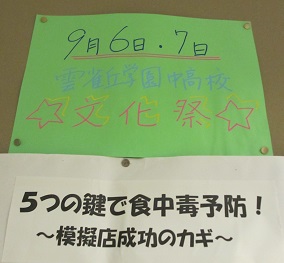 9月6日・7日
雲雀丘学園中高校
☆文化祭☆
5つの鍵で食中毒予防！
～模擬店成功のカギ～